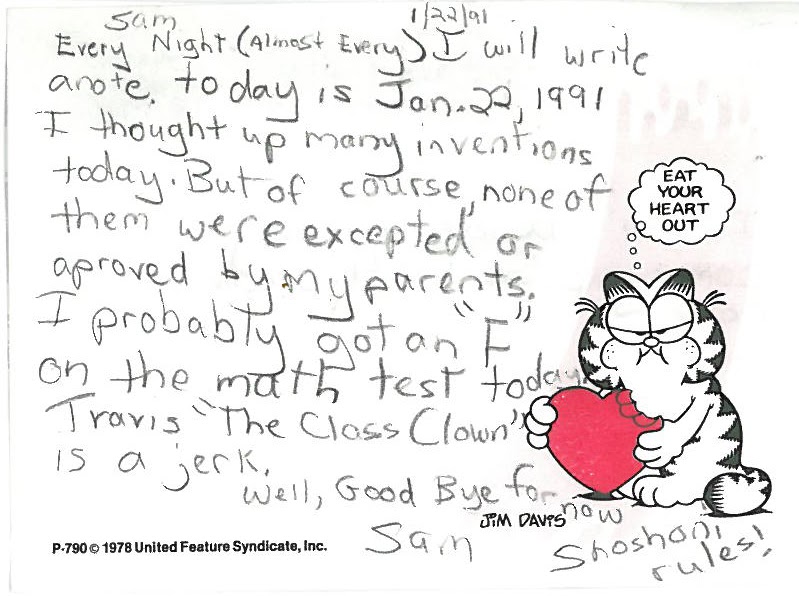 Sam 1/22/91
Every Night (Almost Every) I will write
a note. today is Jan. 22, 1991
I thought up many inventions
today. But of course, none of
them were excepted or
aproved by my parents.
I probably got an "F"
on the math test today.
Travis "The Class Clown"
is a jerk.
Well, Good Bye for now
Sam
Shoshoni
rules!
EAT
YOUR
HEART
OUT
JIM DAVIS
P-790 © 1978 United Feature Syndicate, Inc.